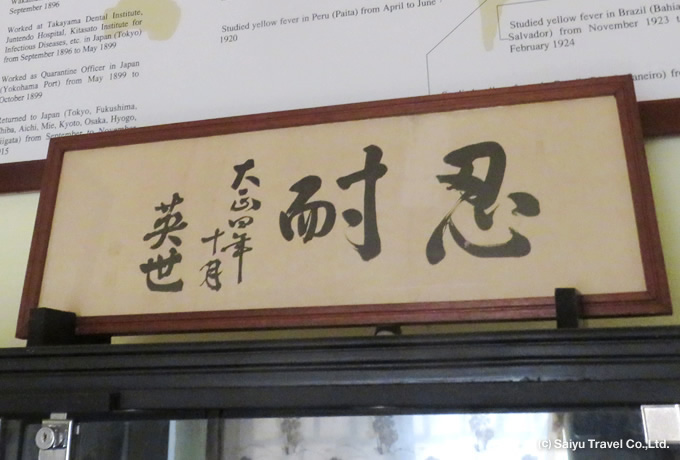 September 1896
Worked at Takayama Dental Institute,
Juntendo Hospital, Kitasato Institute for
Infectious Diseases, etc. in Japan (Tokyo)
from September 1896 to May 1899
Worked as Quarantine Officer in Japan
(Yokohama Port) from May 1899 to
October 1899
Returned to Japan (Tokyo, Fukushima,
Chiba, Aichi, Mie, Kyoto, Osaka, Hyogo,
Niigata) from September to November
1915
Studied yellow fever in Peru (Paita) from April to June
1920
Studied yellow fever in Brazil (Bahia
Salvador) from November 1923 to
February 1924
忍耐
大正四年
十月
英世
(C) Saiyu Travel Co.,Ltd.